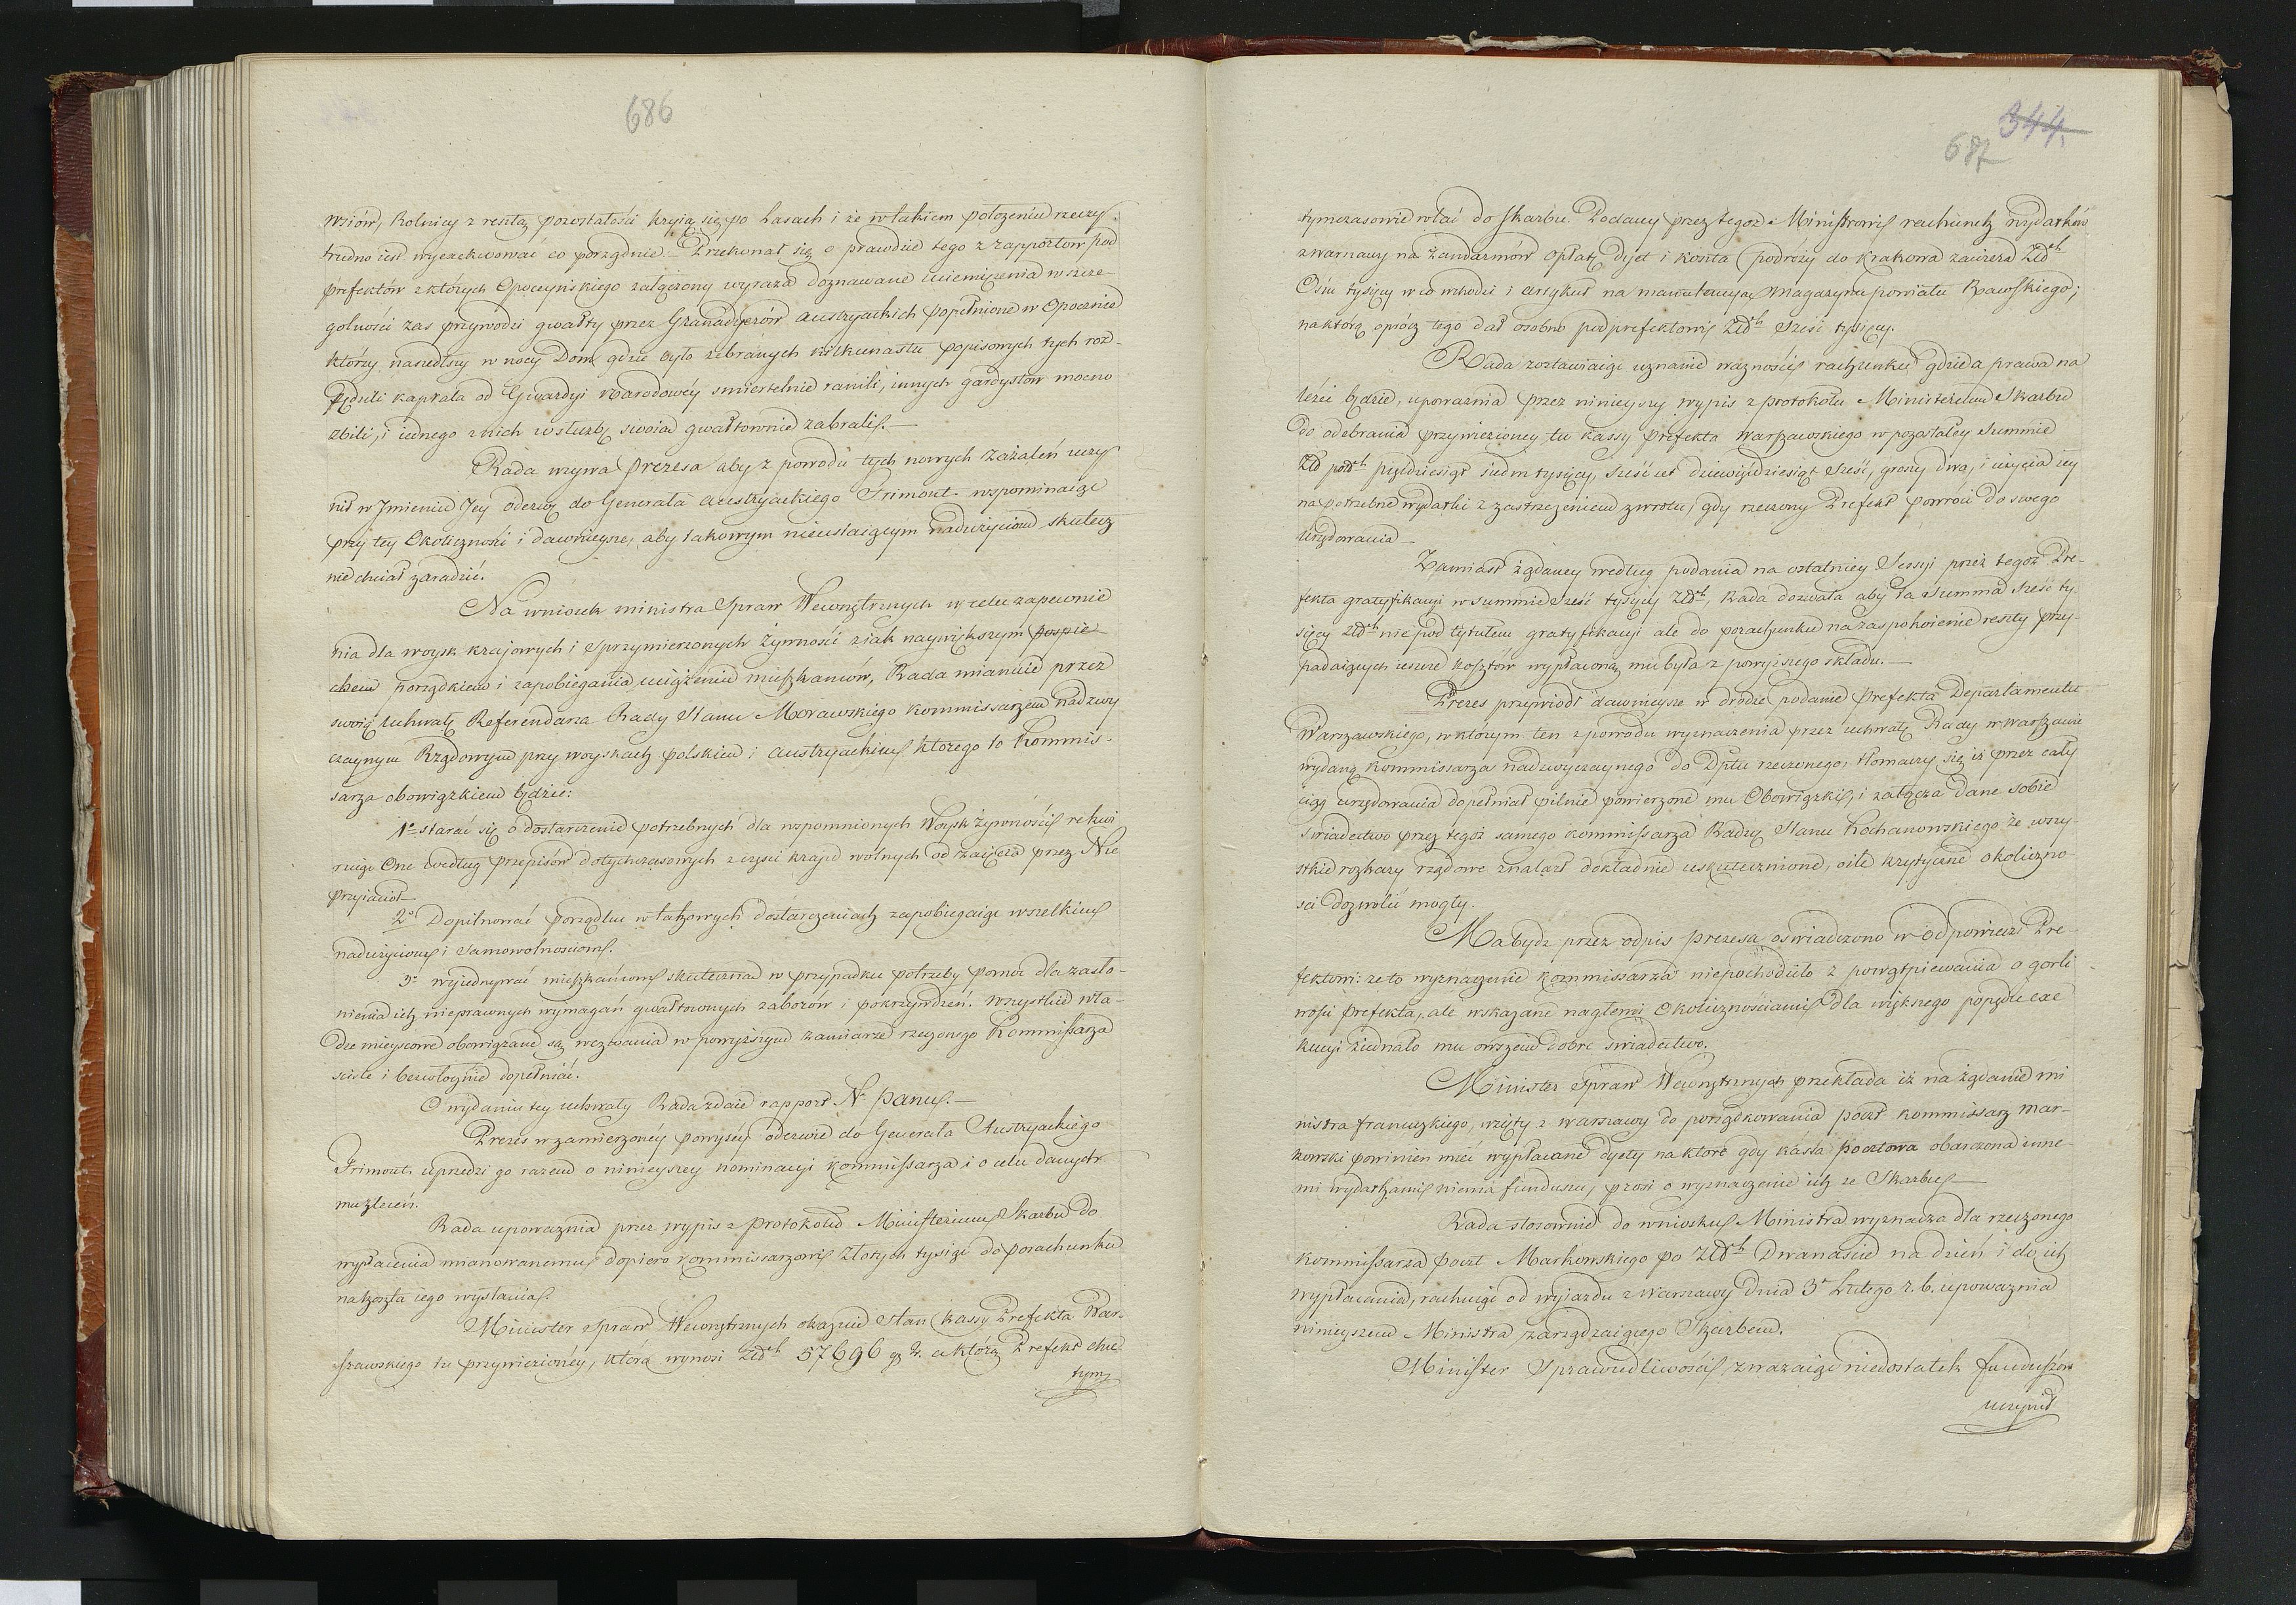 686
wsiów, Rolnicy z resztą pozostałości kryią się po Lasach i że w takiem położeniu rzeczy
trudno iest wyexekwować co porządnie. Przekonał się o prawdzie tego z rapportow pod
prefektów z których Opoczyńskiego załączony wyraża doznawane uciemiężenia w szcze-
gólności zas przywodzi gwałty przez Granadyerów Austryackich popełnione w Opocznie
którzy naszedłszy w nocy Dom gdzie było zebranych kilkunastu popisowych tych roz-
pędzili kaprala od Gwardyi Narodowéy smiertelnie ranili, innych gardystow mocno
zbili, i iednego z nich w służbę swoia gwałtownie zabrali.—
Rada wzywa Prezesa aby z powodu tych nowych zażaleń uczy
nił w Jmieniu Jey odezwę do Generała Austryackiego Frimont. wspominaiąc
przy tey Okoliczności i dawnieysze, aby takowym nieustaiącym nadużyciom skutecz
nie chciał zaradzić.
Na wniosek ministra Spraw Wewnętrznych w celu zapewnie
nia dla woysk krajowych i Sprzymierzonych Żywności z iak naywiększym pospie
chem porządkiem i zapobiegania uciążeniu mieszkańców, Rada mianuie przez
swoią uchwałę Referendarza Rady Stanu Morawskiego Kommissarzem Nadzwy
czaynym Rządowym przy woyskach polskiem i Austryackiem którego to Kommis-
sarza obowiązkiem będzie:
1o starać się o dostarczenie potrzebnych dla wspomnionych Woysk Żywności rekwi
ruiąc One według przepisów dotychczasowych z części kraju wolnych od zaięcia przez Nie
przyiaciół
2o Dopilnować porządku w takowych dostarczeniach zapobiegaiąc wszelkim
nadużyciom i samowolnościom.
3o wyiednywać mieszkańcom skuteczna w przypadku potrzeby pomoc dla zasło-
nienia ich nieprawnych wymagań gwałtownych zaborów i pokrzywdzeń. Wszystkie Wła-
dze mieyscowe obowiązane są wezwania w powyższym zamiarze rzeczonego Kommissarza
sciśle i bezwłoynie dopełniać.
O wydaniu tey uchwały Rada zdaie rapport N. Panu.—
Prezes w zamierzonéy powyséy odezwie do Generała Austryackiego
Frimont. uprzedzi go razem o ninieyszey nominacyi Kommissarza i o celu danych
mu zleceń.
Rada upoważnia przez wypis z Protokołu Ministerium Skarbu do
wypłacenia mianowanemu dopiero Kommissarzowi Złotych tysiąc do porachunku
na koszta iego wysłania.
Minister Spraw Wewnętrznych okazuie stan Kassy Prefekta War-
szawskiego tu przywiezionéy, która wynosi Złch 57696 gr 2. a którą Prefekt chce
tym
344.
687
tymczasowie wlać do Skarbu. Podany przez tegoż Ministrowi rachunek wydatków
zwarnawy na Żandarmów opłatę dyet i koszta podróży do Krakowa zawiera Złch
Ośm tysięcy w co wchodzi i artykuł na Magazynu powiatu Rawskiego;
na którą oprócz tego dał osobno podprefektowi Złch sześć tysięcy.
Rada zostawiaiąc uznanie ważności rachunku gdzie z prawa na
leżeć będzie, upoważnia przez ninieyszy wypis z protokołu Ministerium Skarbu
do odebrania przywiezioney tu Kassy Prefekta Warszawskiego w pozostałey Summie
Złp polch pięćdziesiąt siedm tysięcy, sześćset dziewięćdziesiąt sześć, groszy dwa, i użycia iey
na potrzebne wydatki z zastrzeżeniem zwrotu, gdy rzeczony Prefekt powróci do swego
Urzędowania —
Zamiast żądaney według podania na ostatniey Sessyi przez tegoż Pre-
fekta gratyfikacyi w summie sześć tysięcy Złch, Rada dozwala aby ta Summa sześć ty-
sięcy Złch nie pod tytułem gratyfikacyi ale do porachunku na zaspokoienie reszty przy-
padaiących ieszcze kosztów wypłaconą mu była z powyższego składu.—
Prezes przywiodł dawnieysze w drodze podanie Prefekta Departamentu
Warszawskiego, w którym ten z powodu wyznaczenia przez uchwałę Rady w Warszawie
wydaną Kommissarza nadzwyczaynego do Dptu rzeczonego, tłomaczy się iż przez cały
ciąg urzędowania dopełniał pilnie powierzone mu Obowiązki, i załącza dane sobie
Swiadectwo przez tegoż samego Kommissarza Radzcę Stanu Kochanowskiego że wszy-
stkie rozkazy rządowe znalazł dokładnie uskutecznione, o ile krytyczne okoliczno-
sci dozwolić mogły.
Ma bydz przez odpis prezesa oswiadczono w odpowiedzi Pre-
fektowi: że to wyznaczenie Kommissarza niepochodziło z powątpiewania o gorli
wości Prefekta, ale wskazane nagłemi Okolicznościami dla większego popędu exe
kucyi ziednało mu owszem dobre świadectwo.
Minister Spraw Wewnętrznych przekłada iż na żądanie mi
nistra francuzkiego, wzięty z Warszawy do porządkowania poczt Kommissarz Mar-
kowski powinien mieć wypłacane dyety na które gdy kassa pocztowa obarczona inne-
mi wydatkami niema funduszu, prosi o wyznaczenie ich ze Skarbu —
Rada stosownie do wniosku Ministra wyznacza dla rzeczonego
Kommissarza poczt Markowskiego po Złch Dwanaście na dzień i do ich
wypłacania, rachuiąc od wyjazdu z Warszawy dnia 3o Lutego r. b. upoważnia
ninieyszem Ministra zarządzaiącego Skarbem.
Minister Sprawiedliwości zważaiąc niedostatek funduszów
uczynił